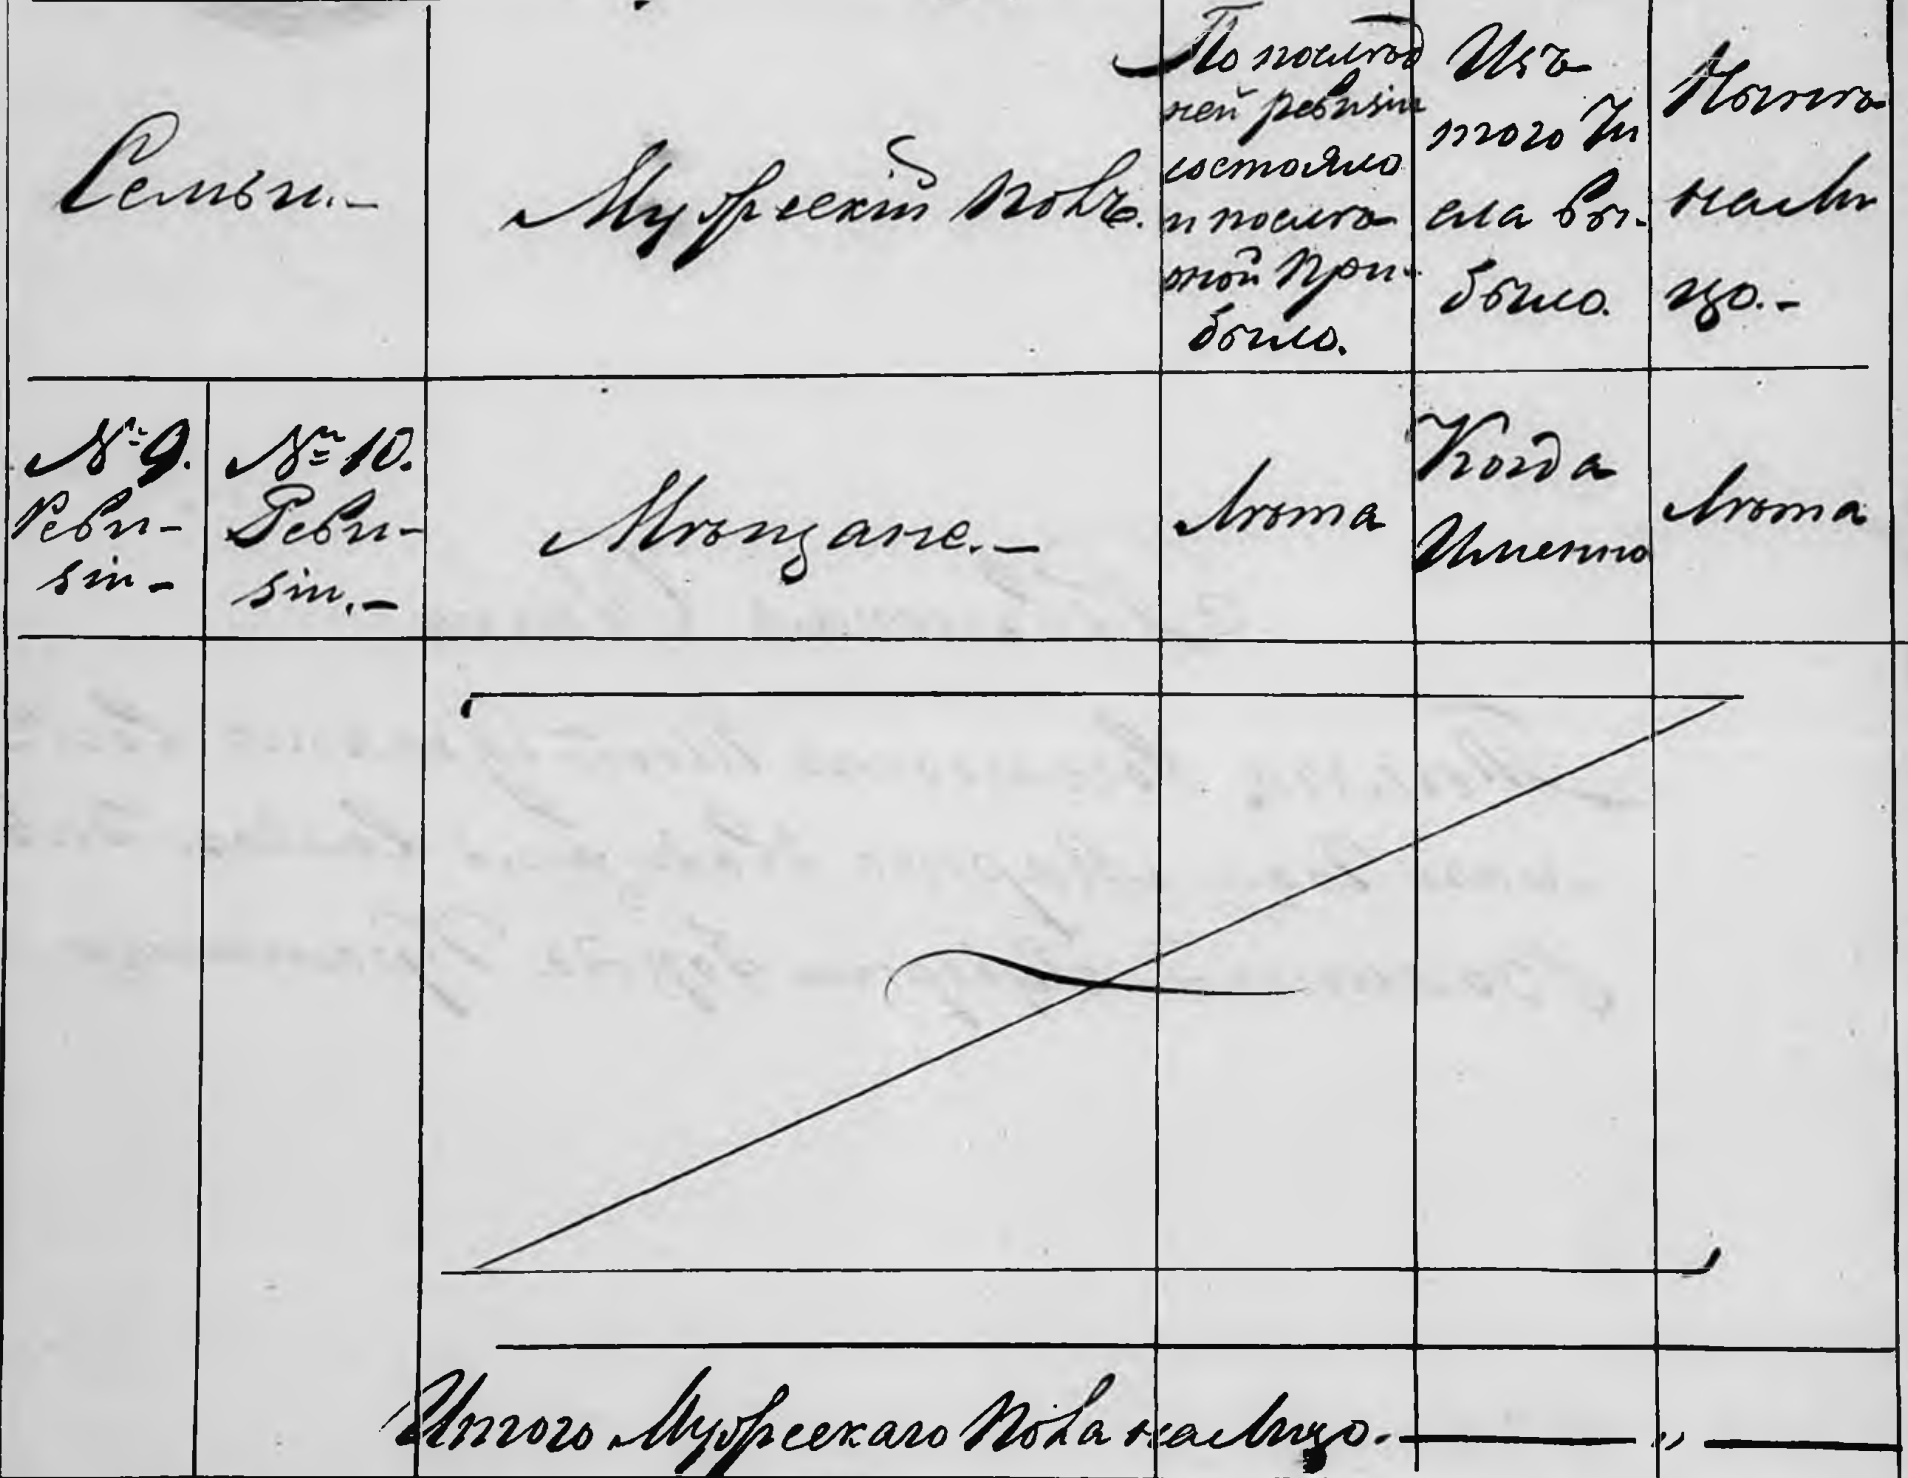 Семьи.-
Мужескій Полъ.
По послѣд
ней ревизіи
состояло
и послѣ
оной при-
было.
Изъ
того чи
сла вы-
было.
Нынѣ
на ли
цо.-
№ 9.
Реви-
зіи -
№ 10.
Реви-
зіи.-
Мѣщане.-
Лѣта
Когда
Именно
Лѣта
Итого Мужескаго Пола на Лицо. — „ —